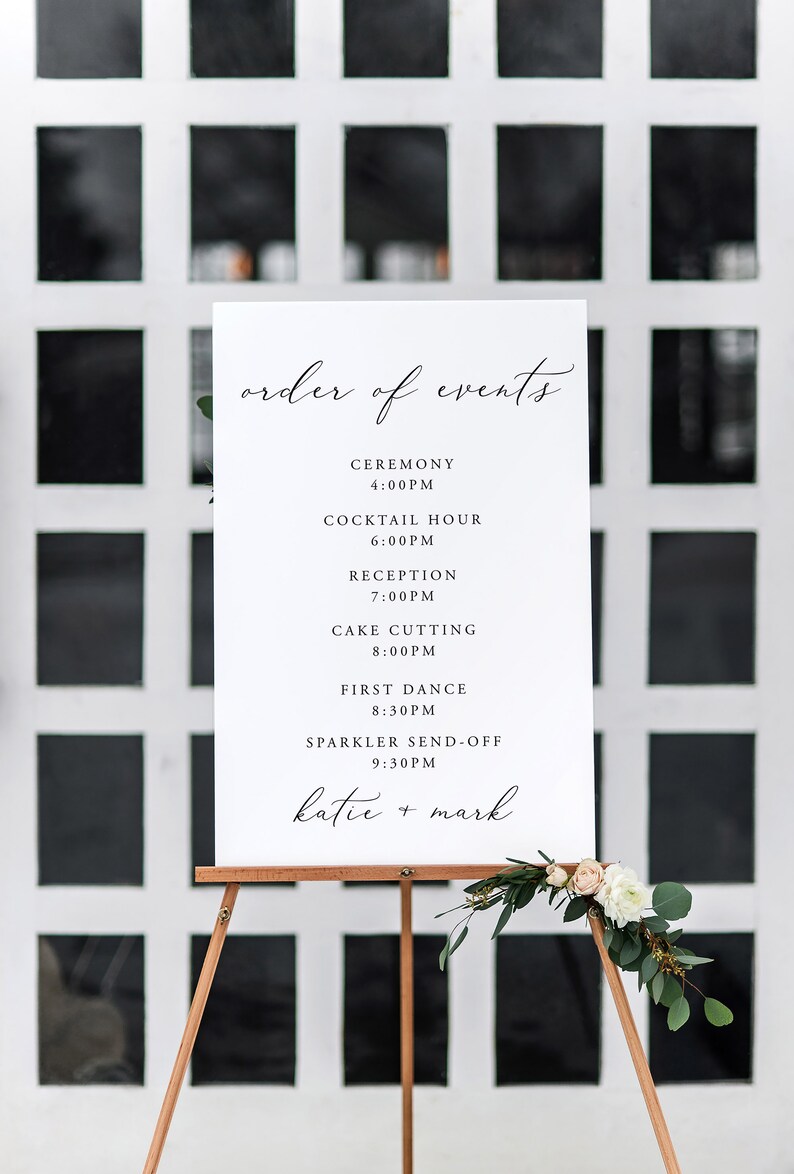 order of events
CEREMONY
4:00PM
COCKTAIL HOUR
6:00PM
RECEPTION
7:00PM
CAKE CUTTING
8:00PM
FIRST DANCE
8:30PM
SPARKLER SEND-OFF
9:30PM
katie + mark